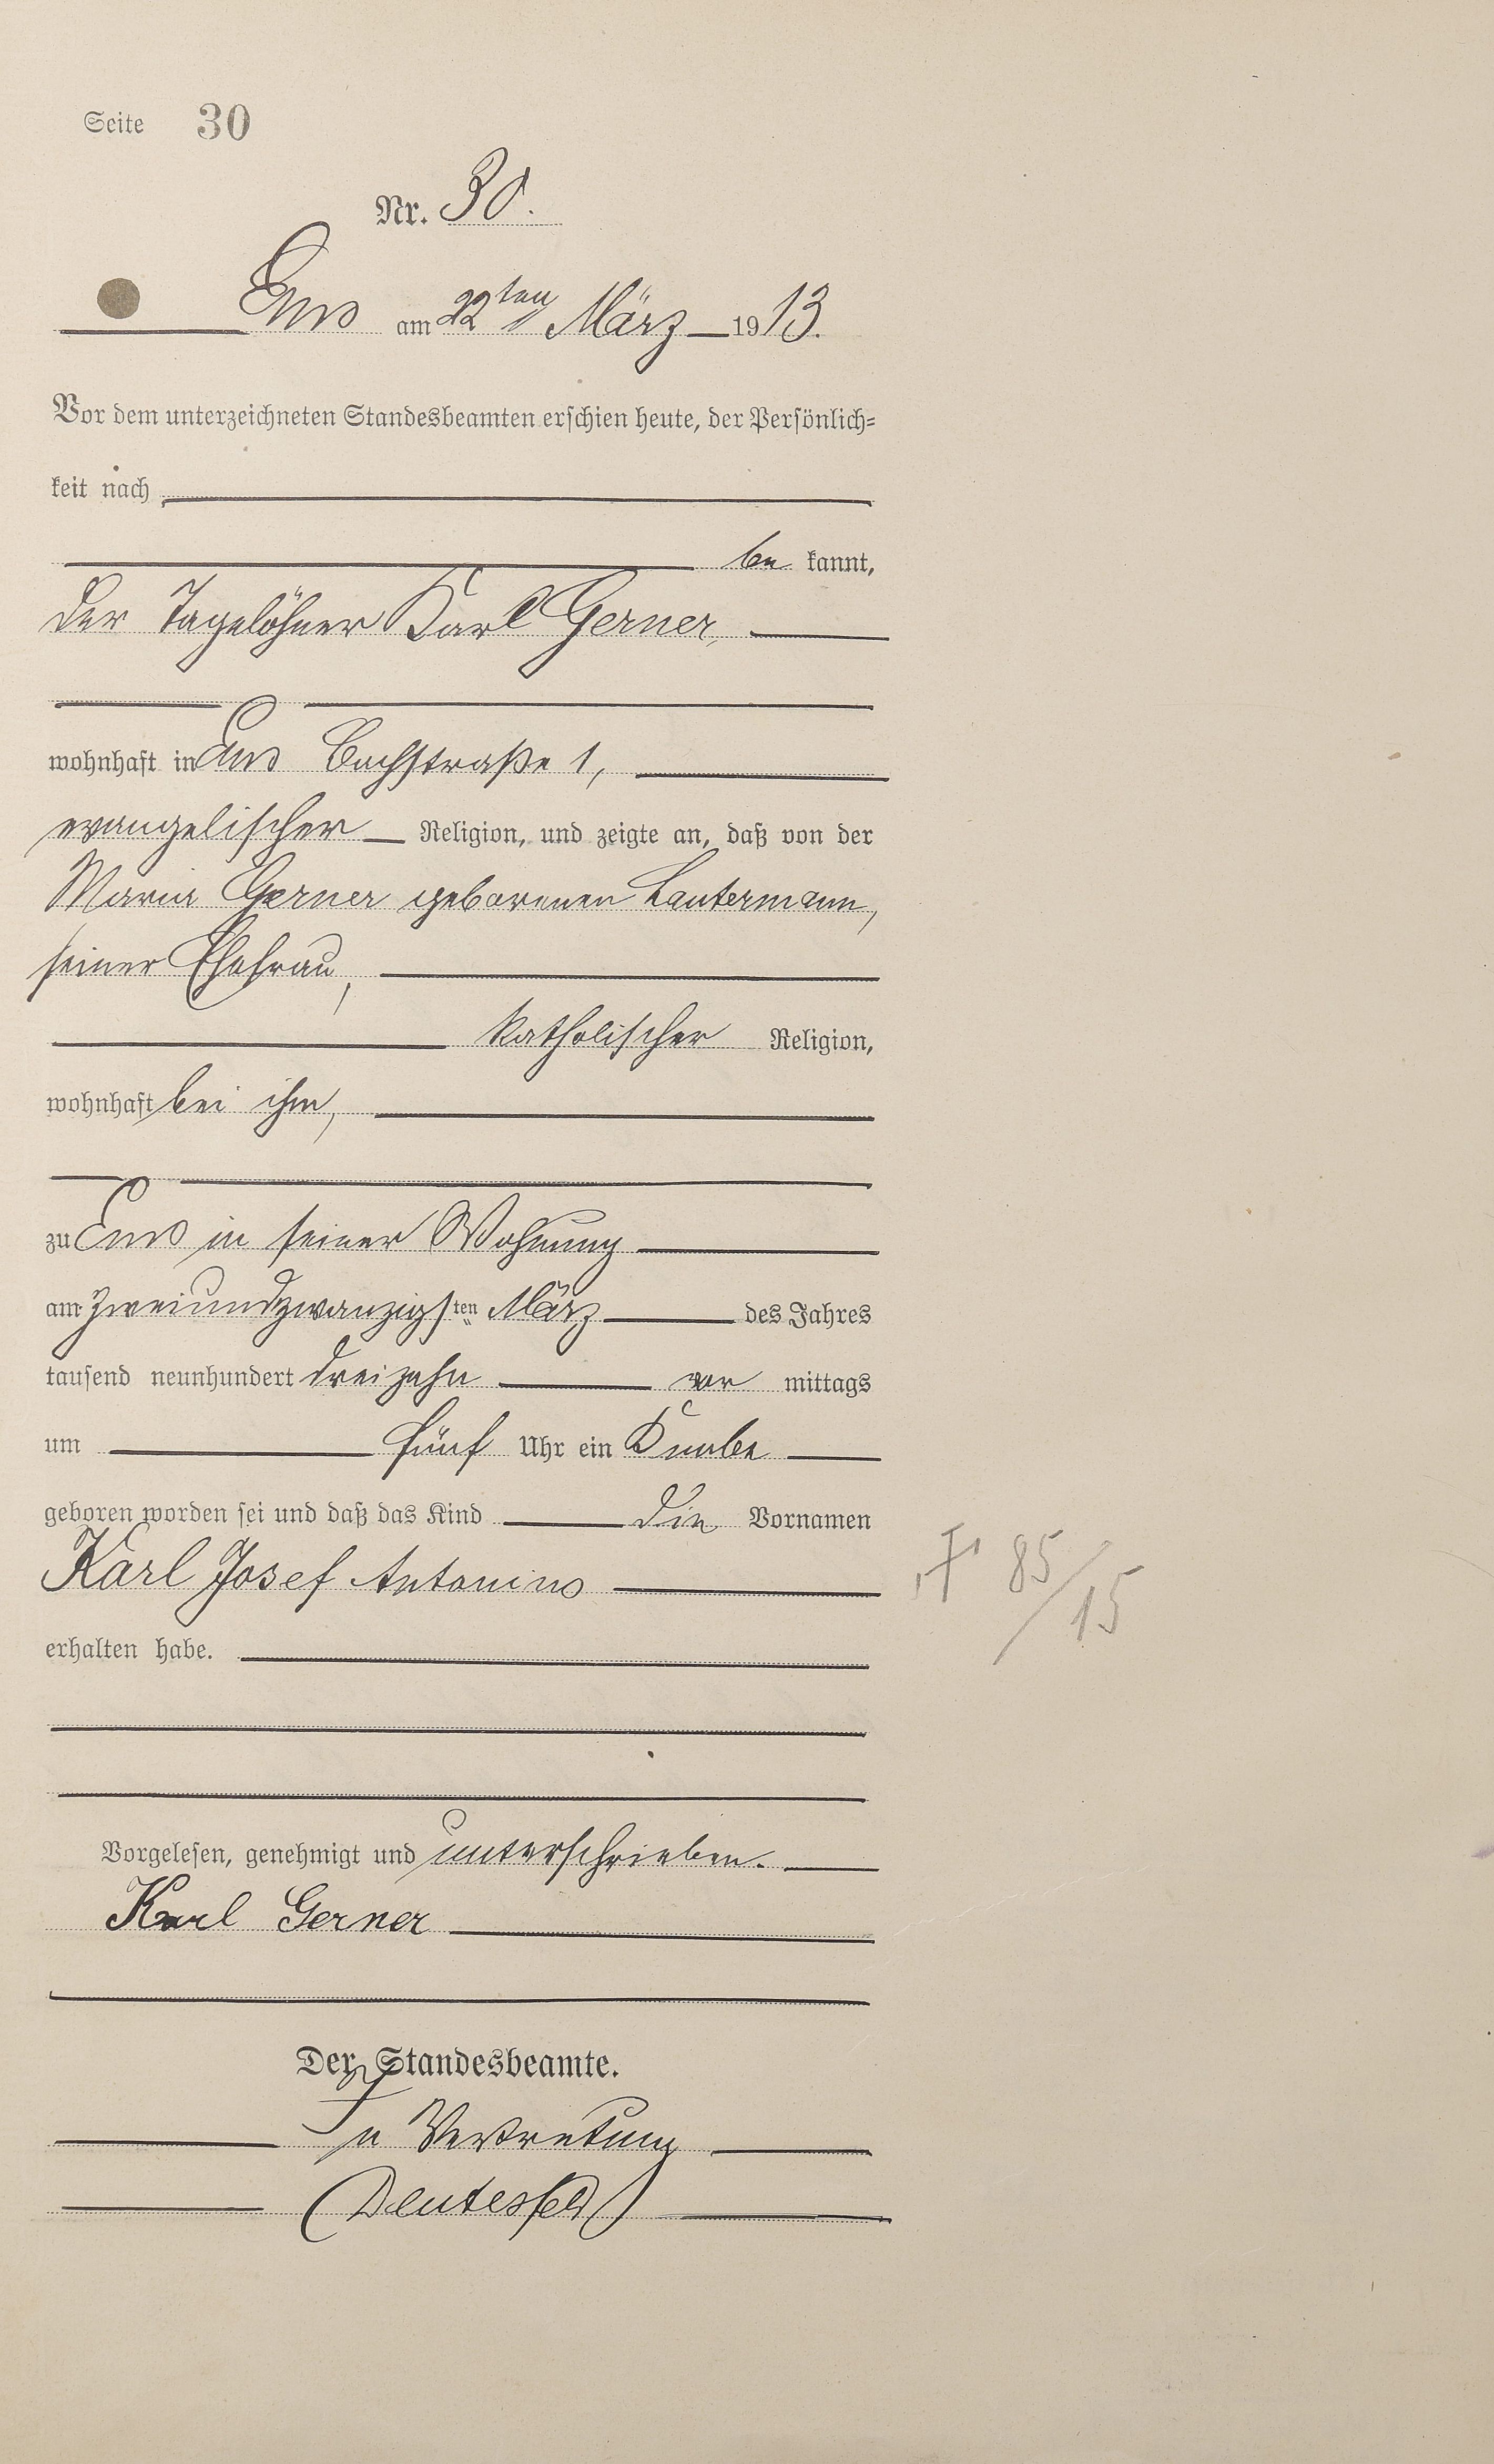 Seite 30
Nr. 30.
Ems am 22ten März 1913.
Vor dem unterzeichneten Standesbeamten erschien heute, der Persönlich-
keit nach
be kannt,
der Tagelöhner Karl Gerner,
wohnhaft in Ems Bachstraße 1,
evangelischer Religion, und zeigte an, daß von der
Maria Gerner geborenen Lautermann,
seiner Ehefrau,
katholischer Religion,
wohnhaft bei ihm,
zu Ems in seiner Wohnung
am zweiundzwanzigsten März des Jahres
tausend neunhundert dreizehn vor mittags
um fünf Uhr ein Knabe
geboren worden sei und daß das Kind die Vornamen
Karl Josef Antonius
† 85/15
erhalten habe.
Vorgelesen, genehmigt und unterschrieben.
Karl Gerner
Der Standesbeamte.
In Vertretung
(Deutesfeld)